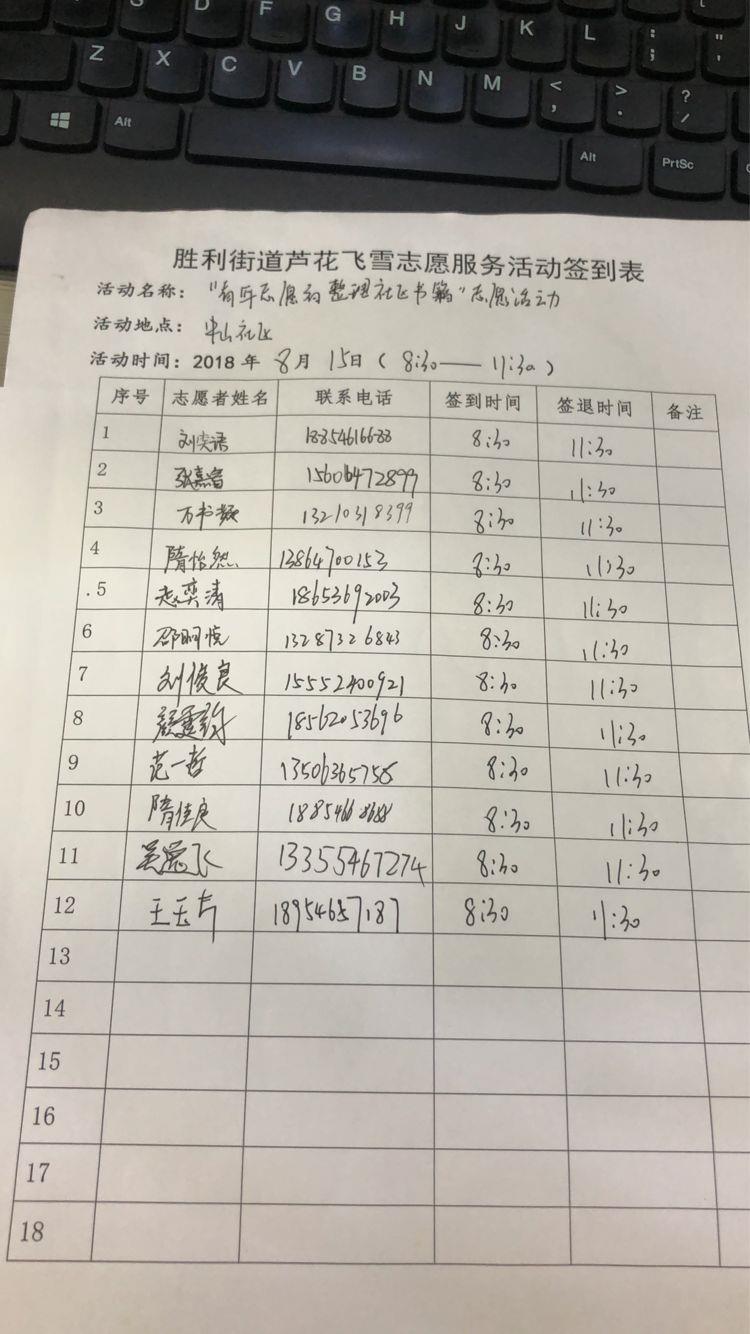 S D F G H J K L ; :
Z X C V B N M < , > . ? /
Alt Alt PrtSc
胜利街道芦花飞雪志愿服务活动签到表
活动名称："青年志愿者整理社区书籍"志愿活动
活动地点： 中山社区
活动时间：2018 年 8月 15日（ 8:30——11:30 ）
序号 志愿者姓名 联系电话 签到时间 签退时间 备注
1 刘奕诺 18354616688 8:30 11:30
2 张嘉睿 15606472899 8:30 11:30
3 万书 13210318399 8:30 11:30
4 隋怡然 13864700153 8:30 11:30
.5 赵奕清 18653692003 8:30 11:30
6 邵珂悦 13287326843 8:30 11:30
7 刘俊良 15552400921 8:30 11:30
8 18562053696 8:30 11:30
9 范一哲 13506365758 8:30 11:30
10 隋佳良 8:30 11:30
11 13355467274 8:30 11:30
12 王玉芹 18954657187 8:30 11:30
13
14
15
16
17
18